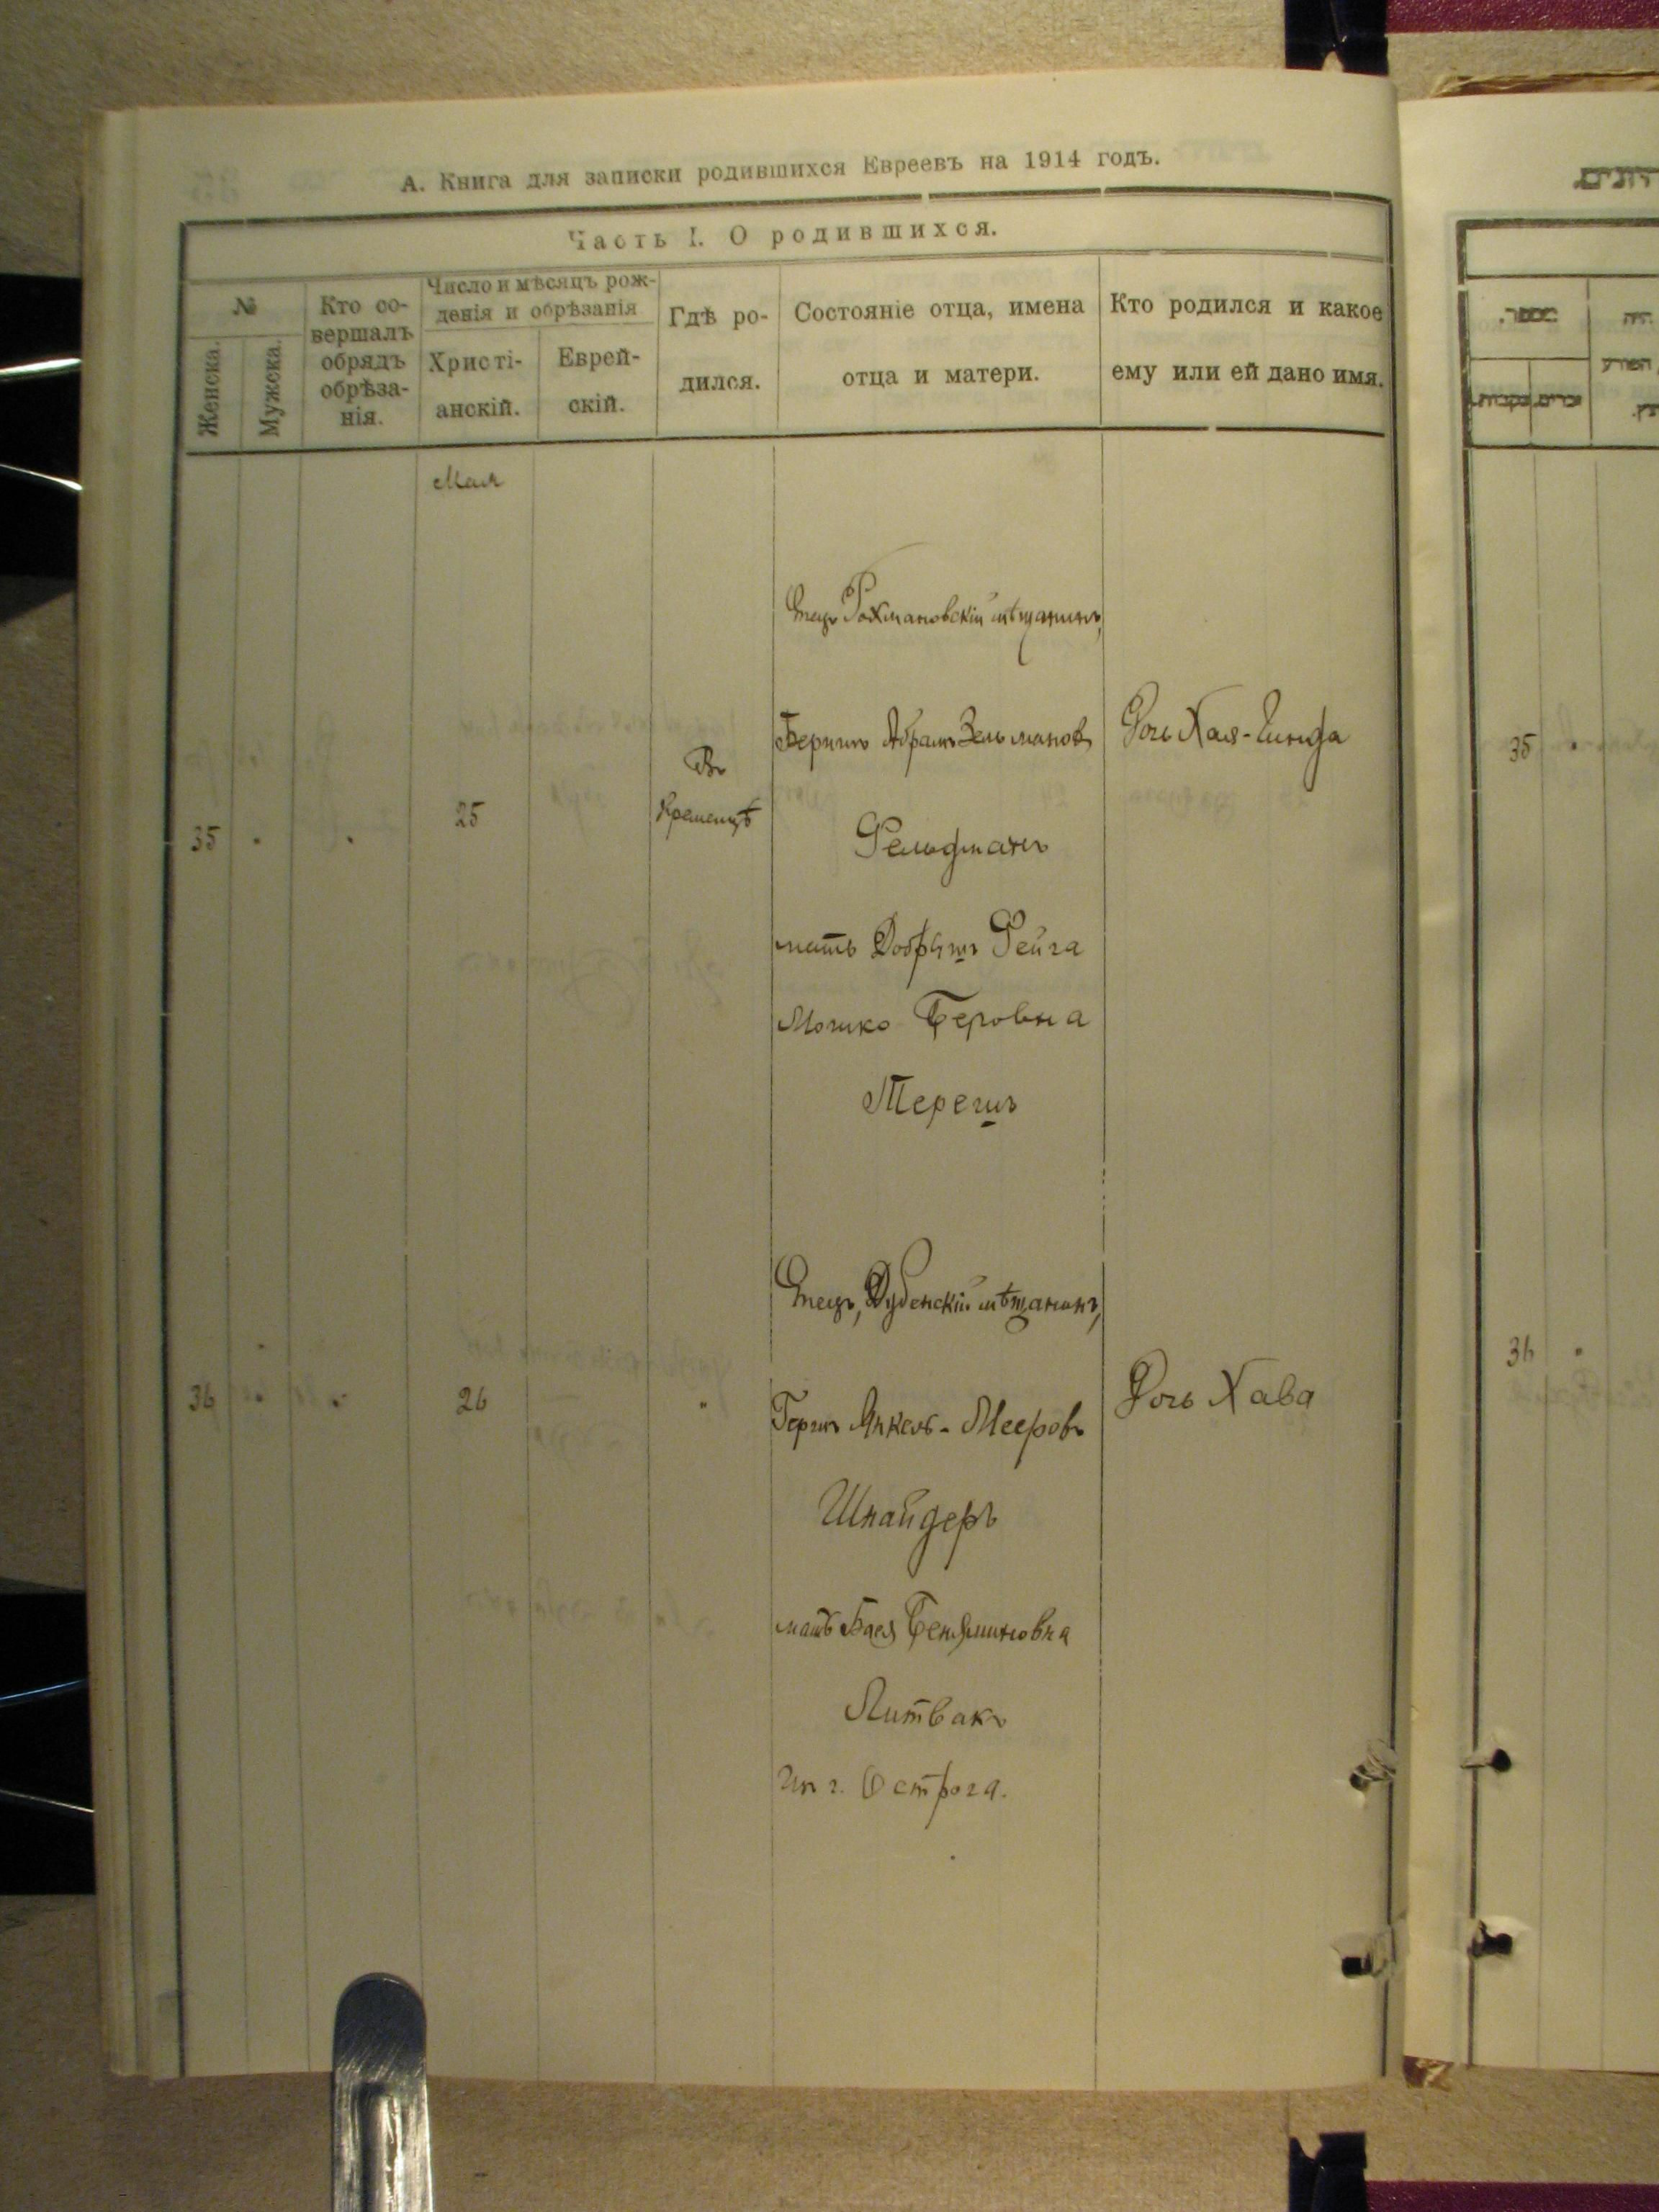 А. Книга для записки родившихся Евреевъ на 1914 годъ.
Часть I. О родившихся.
№
Женска.
Мужска.
Кто со-
вершалъ
обрядъ
обрѣза-
нія.
Число и мѣсяцъ рож-
денія и обрѣзанія
Христі-
анскій.
Еврей-
скій.
Гдѣ ро-
дился.
Состояніе отца, имена
отца и матери.
Кто родился и какое
ему или ей дано имя.
Мая
35
25
Въ
Кременцѣ
Отецъ Рохмановскій мѣщанинъ,
Беришъ Абрамъ Зельманов
Фельдманъ
мать Фейга
Мошко Беровна
Терешъ
Дочь Хая-
36
26
"
Отецъ, Дубенскій мѣщанинъ,
Гершъ Янкель-Мееровъ
Шнайдеръ
мать Бася Беняминовна
Литвакъ
Из г. Острога.
Дочь Хава
35
36